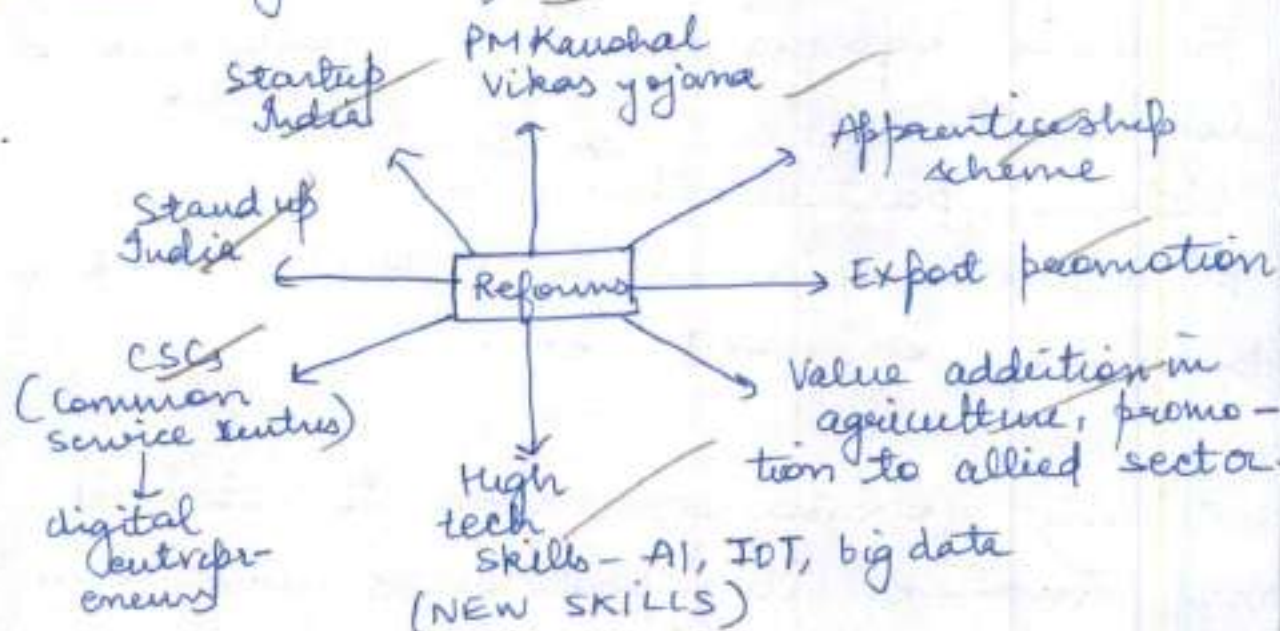 PM Kaushal
Vikas yojana
Startup
India
Apprenticeship
scheme
Stand up
India
Reforms
Export promotion
CSCs
(Common
service centres)
digital
entrepr-
eneurs
High
tech
skills - AI, IOT, big data
(NEW SKILLS)
Value addition in
agriculture, promo-
tion to allied sector.